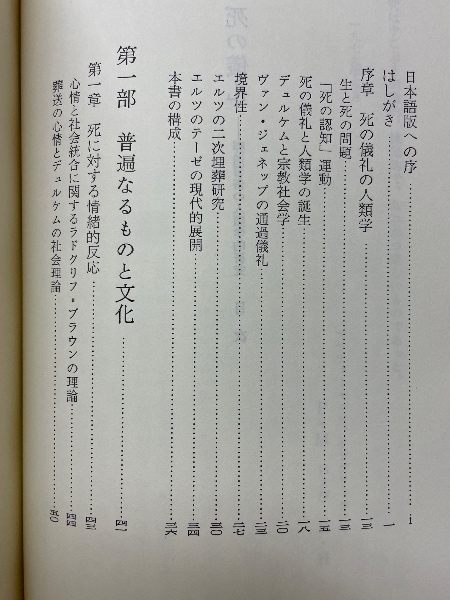 日本語版への序……i
はしがき……一
序章　死の儀礼の人類学……一三
生と死の問題……一三
「死の認知」運動……一五
死の儀礼と人類学の誕生……一八
デュルケムと宗教社会学……二〇
ヴァン・ジェネップの通過儀礼……二三
境界性……二七
エルツの二次埋葬研究……三〇
エルツのテーゼの現代的展開……三四
本書の構成……三六
第一部　普遍なるものと文化……四一
第一章　死に対する情緒的反応……四三
心情と社会統合に関するラドクリフ・ブラウンの理論……四四
葬送の心情とデュルケムの社会理論……五〇